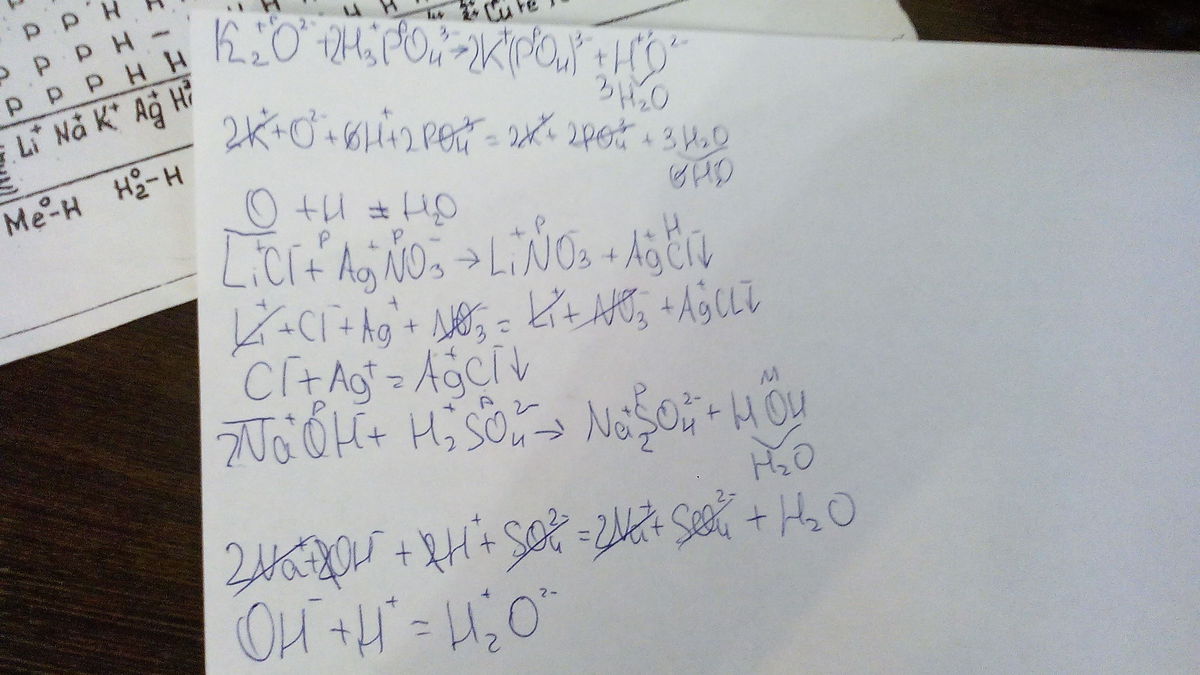 P P H H
P P H –
P P P H H
Li⁺ Na⁺ K⁺ Ag⁺
Me⁰-H H₂⁰-H
K₂⁺O²⁻ + 2H₃⁺PO₄³⁻ → 2K⁺(PO₄)³⁻ + H⁺O²⁻
3H₂O
2K⁺ + O²⁻ + 6H⁺ + 2PO₄³⁻ = 2K⁺ + 2PO₄³⁻ + 3H₂O
O + H = H₂O
Li⁺Cl⁻ + Ag⁺NO₃⁻ → Li⁺NO₃⁻ + Ag⁺Cl⁻↓
Li⁺ + Cl⁻ + Ag⁺ + NO₃⁻ = Li⁺ + NO₃⁻ + Ag⁺Cl⁻↓
Cl⁻ + Ag⁺ = Ag⁺Cl⁻↓
2Na⁺OH⁻ + H₂⁺SO₄²⁻ → Na₂⁺SO₄²⁻ + HOH
H₂O
2Na⁺ + 2OH⁻ + 2H⁺ + SO₄²⁻ = 2Na⁺ + SO₄²⁻ + H₂O
OH⁻ + H⁺ = H₂⁺O²⁻